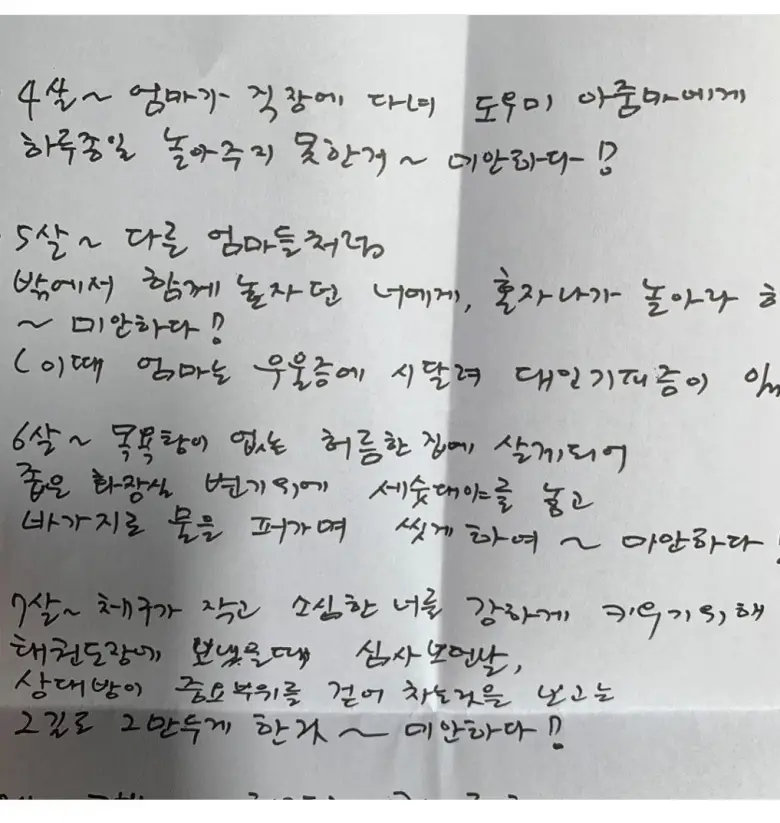 4살~ 엄마가 직장에 다녀 도우미 아줌마에게
하루종일 놀아주지 못한거 ~ 미안하다!!
5살~ 다른 엄마들처럼
밖에서 함께 놀자던 너에게, 혼자나가 놀아라 하
~ 미안하다!!
(이때 엄마는 우울증에 시달려 대인기피증이
6살~ 목욕탕이 없는 허름한 집에 살게되어
좁은 화장실 변기위에 세숫대야를 놓고
바가지로 물을 퍼가며 씻게 하여 ~ 미안하다!
7살~ 체구가 작고 소심한 너를 강하게 키우기위해
태권도장에 보냈을때 심사보던날,
상대방이 중요부위를 걷어 차는것을 보고는
그길로 그만두게 한것 ~ 미안하다!!